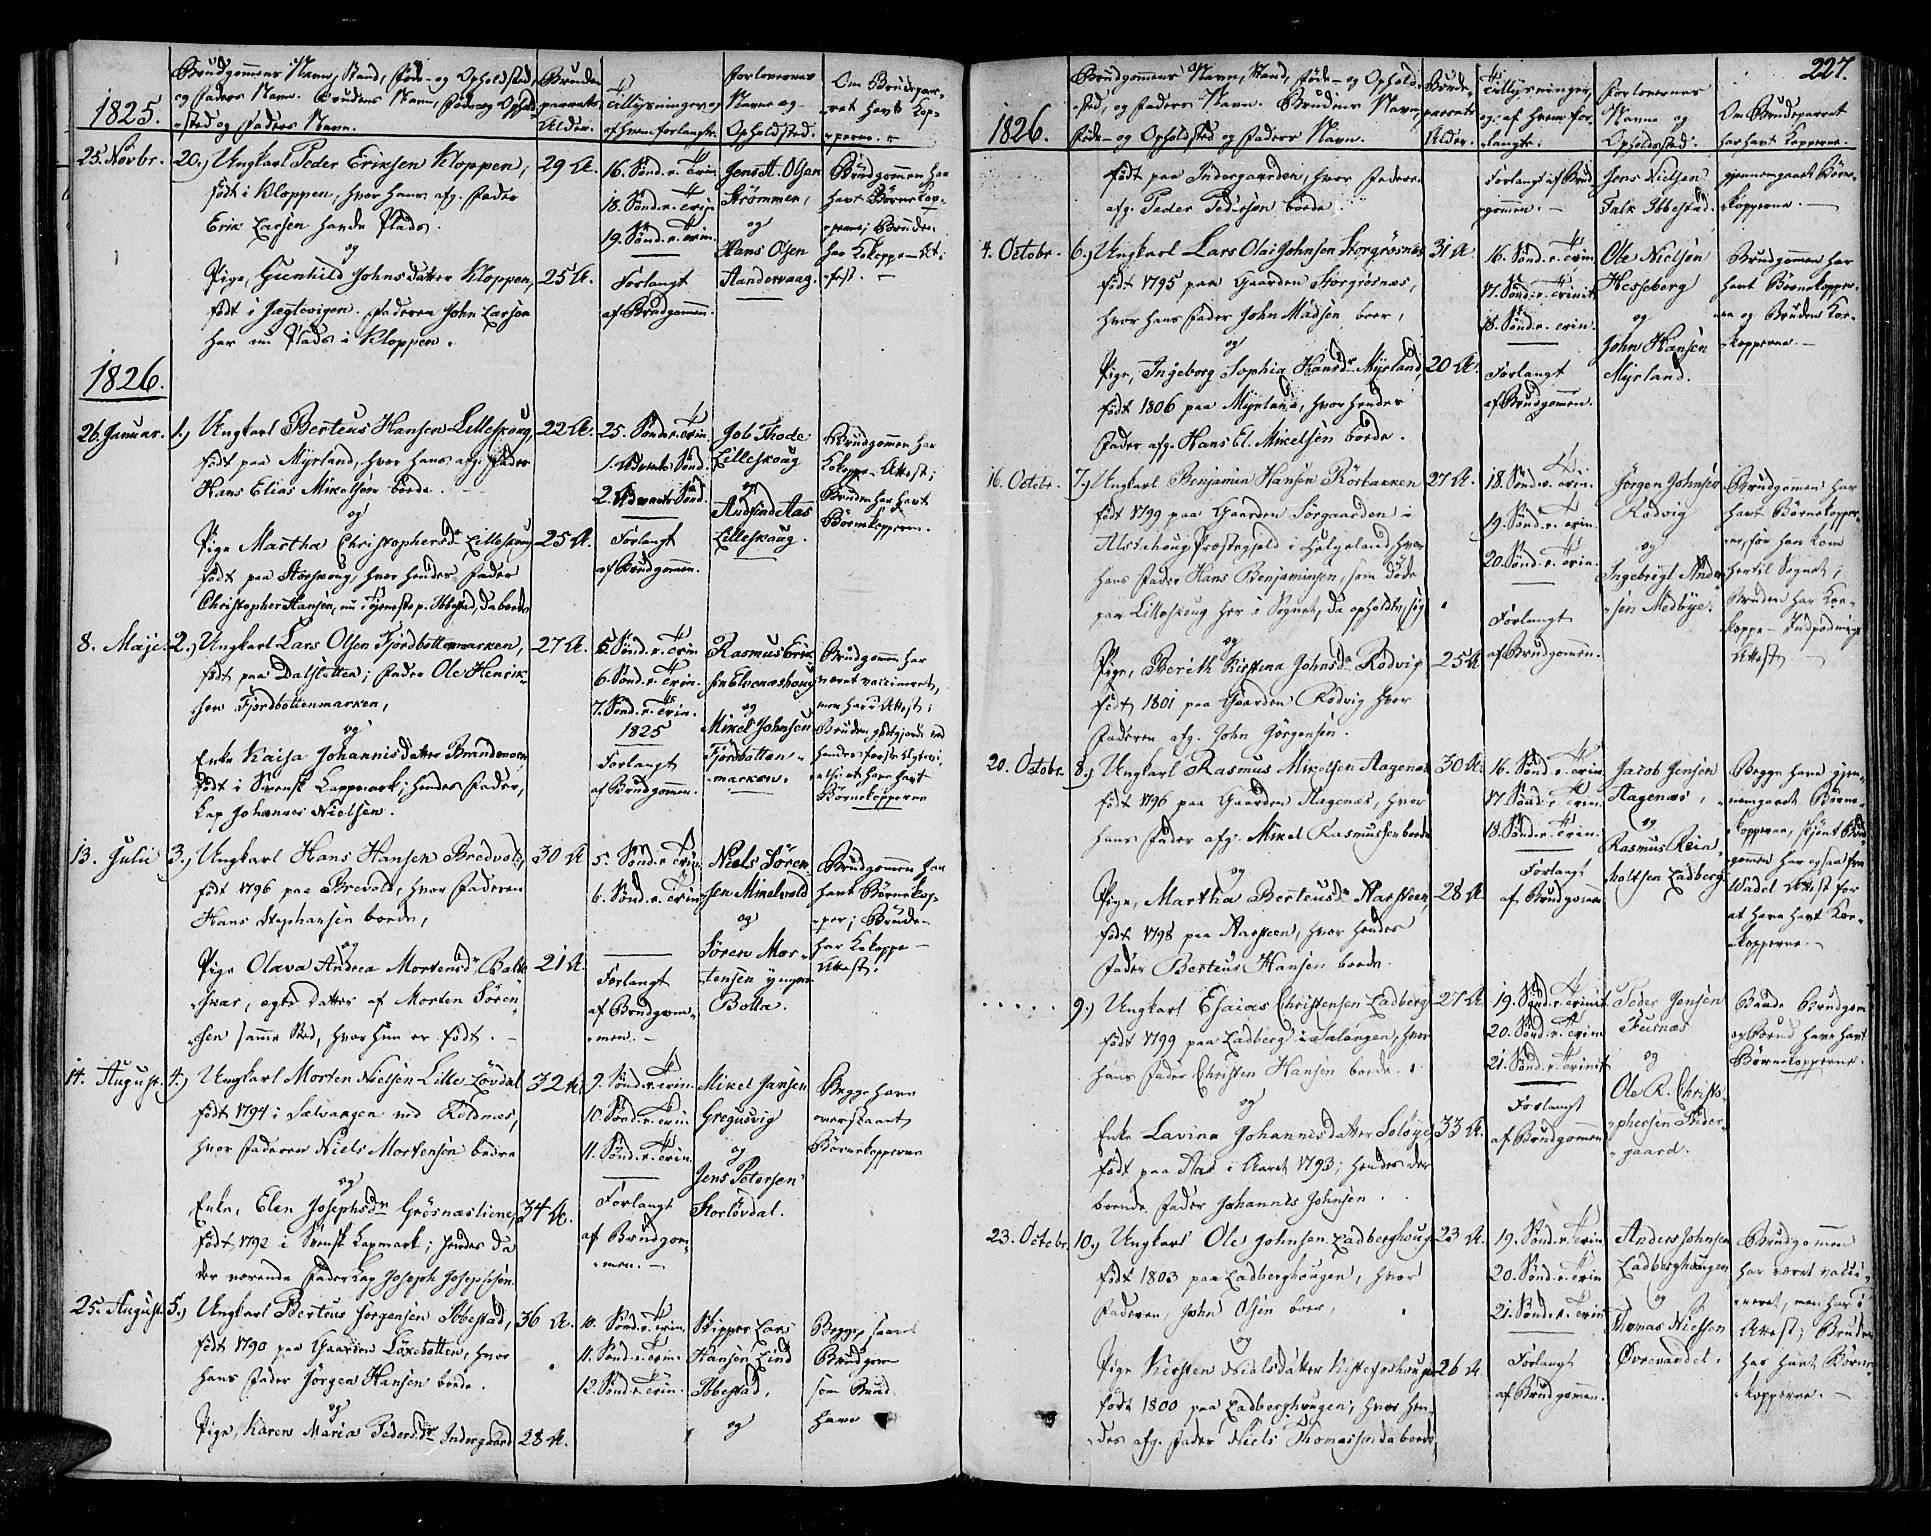 1825.
Brudgommens Navn, Stand, Føde- og Opholdsted,
og Faders Navn. Brudens Navn, Føde- og Ophold-
sted og Faders Navn.
Brude-
parrets
Alder.
Tillysninger og
af hvem forlangte.
Forlovernes
Navne og
Opholdsted.
Om Brudepar-
ret havt Kop-
perne.
25. Novbr.
20.) Ungkarl Peder Eriksen Kloppen,
født i Kloppen, hvor hans afg. Fader
Erik Larsen havde Plads.
og
Pige, Gunhild Johnsdatter Kloppen,
født i Jægtevigen. Faderen John Larsen
har nu Plads i Kloppen.
29 A.
25 A.
16. Sønd. e. Trin.
18. Sønd. e. Trin.
19. Sønd. e. Trin.
Forlangt
af Brudgommen.
Jens A. Olsen
Strømmen,
og
Hans Olsen
Sandervaag.
Brudgommen har
havt Børnekop-
perne; Bruden
har Kokoppe-At-
test.
1826.
26. Januar.
1.) Ungkarl Berteus Hansen Lilleskoug,
født paa Myrland, hvor hans afg. Fader
Hans Elias Mikelsen boede.
og
Pige Martha Christophersdr Lilleskoug
født paa Storskoug, hvor hendes Fader
Christopher Hansen, nu i Tjeneste p. Ibbestad, da boede
22 A.
25 A.
25. Sønd. e. Trin.
1. Advents Sønd.
2. Advents Sønd.
Forlangt
af Brudgommen.
Job Thode
Lilleskoug
og
Lilleskoug.
Brudgommen har
Kokoppe-Attest;
Bruden har havt
Børnekopperne.
8. Maji.
2.) Ungkarl Lars Olsen Fjordbottenmarken,
født paa Dalsletten; Fader Ole Henrik-
sen Fjordbottenmarken,
og
Enke Kaisa Johannisdatter Brandmoen,
født i Svensk Lapmark; hendes Fader,
Lap Johannes Nielsen.
27 A.
5. Sønd. e. Trin.
6. Sønd. e. Trin.
7. Sønd. e. Trin.
1825
Forlangt
af Brudgommen.
Rasmus Erik-
sen Elvenæshoug
og
Mikel Johnsen
Fjordbotten-
marken.
Brudgommen har
været vaccineret,
Bruden godtgjorde ved
at have havt
Børnekopperne
13. Julii
3.) Ungkarl Hans Hansen Bredvold,
født 1796 paa Brevold, hvor Faderen
Hans Stephansen boede,
og
Pige Olava Andrea Mortensdr Balte-
skar, egte Datter af Morten Søren-
sen samme Sted, hvor hun er født.
30 A
21 A.
5. Sønd. e. Trin.
6. Sønd. e. Trin.
Forlangt
af Brudgom-
men.
Niels Søren-
sen Mikelvold
og
Søren Mor-
tensen yngre
Bolla.
Brudgommen har
havt Børnekop-
per; Bruden
har Kokoppe-
Attest.
14. August.
4.) Ungkarl Morten Nielsen Lille Løvdal
født 1794 i Salvangen ved Roldnæs,
hvor Faderen Niels Mortensen boede
og
Enke, Elen Josephsdr Grøsnæslien,
født 1792 i Svensk Lapmark; hendes da
der værende Fader Lap Joseph Josephsen.
32 A.
34 A.
9. Sønd. e. Trin.
10. Sønd. e. Trin.
11. Sønd. e. Trin.
Forlangt
af Brudgom-
men.
Mikel Jansen
Gregusvig
og
Jens Petersen
Storløvdal.
Begge have
overstaaet
Børnekopperne
25. August.
5.) Ungkarl Berteus Jørgensen Ibbestad,
født 1790 paa Gaarden Laxebotten, hvor
hans Fader Jørgen Hansen boede.
og
Pige, Karen Maria Pedersdr Indergaard
36 A.
28 A.
10. Sønd. e. Trin.
11. Sønd. e. Trin.
12. Sønd. e. Trin.
Skipper Lars
Hansen Lind
Ibbestad,
og
Begge, saavel
Brudgom
som Brud
have
227.
1826.
Brudgommens Navn, Stand, Føde- og Ophold-
sted, og Faders Navn. Brudens Navn,
Føde- og Opholdsted og Faders Navn.
Brude-
parrets
Alder.
Tillysninger,
og af hvem for-
langte.
Forlovernes
Navne og
Opholdsted.
Om Brudeparret
har havt Kopperne.
født paa Indergaarden, hvor Faderen
afg. Peder Pedersen boede
Forlangt af Brud-
gommen.
Jens Nielsen
Falk Ibbestad.
gjennemgaaet Børne-
kopperne.
4. Octobr.
6.) Ungkarl Lars Olai Johnsen Storgrøsnæs
født 1795 paa Gaarden Storgrøsnæs,
hvor hans Fader John Madsen boer,
og
Pige, Ingeborg Sophia Hansdr Myrland,
født 1806 paa Myrland, hvor hendes
Fader afg. Hans El. Mikelsen boede.
31 A.
20 A.
16. Sønd. e. Trin.
17. Sønd. e. Trinit.
18. Sønd. e. Trin.
Forlangt
af Brudgommen.
Ole Nielsen
Hesseberg
og
John Hansen
Myrland.
Brudgommen har
havt Børnekopper-
ne og Bruden Koe-
kopperne.
16. Octobr.
7.) Ungkarl Benjamin Hansen Rørbakken
født 1799 paa Gaarden Sørgaarden i
Alstahoug Præstegjeld i Helgeland, hvor
hans Fader Hans Benjaminsen, som døde
paa Lilleskoug her i Sognet, da opholdt sig
og
Pige, Berith Kirstina Johnsdr Rodvig
født 1801 paa Gaarden Rodvig hvor
Faderen afg. John Jørgensen.
27 A.
25 A
18. Sønd. e. Trin.
19. Sønd. e. Trin.
20. Sønd. e. Trin.
Forlangt
af Brudgommen.
Jørgen Johnsen
Rodvig
og
Ingebrigt Ander-
sen Medbye.
Brudgommen har
havt Børnekopper-
ne, før han kom
hertil Sognet;
Bruden har Koe-
koppe-Indpodnings
Attest.
20. Octobr.
8.) Ungkarl Rasmus Mikelsen Aagenæs
født 1796 paa Gaarden Aagenæs, hvor
hans Fader afg. Mikel Rasmussen boede
og
Pige, Martha Berteusdr Aarsteen,
født 1798 paa Aarsteen, hvor hendes
Fader Berteus Hansen boede.
30 A.
28 A
16. Sønd. e. Trin.
17. Sønd. e. Trin.
18. Sønd. e. Trin.
Forlangt
af Brudgommen
Jacob Jensen
Aagenæs,
og
Rasmus Rein-
holtsen Ladberg.
Begge have gjen-
nemgaaet Børne-
kopperne, skjønt Brud-
gommen har ogsaa fra
Wadel Attest for
at have havt Koe-
kopperne.
9.) Ungkarl Esaias Christensen Ladberg
født 1799 paa Ladberg i Salangen, hvor
hans Fader Christen Hansen boede.
og
Enke Lavina Johannisdatter Soløye
født paa Aas i Aaret 1793; hendes der
boende Fader Johannes Johnsen.
27 A.
33 A.
19. Sønd. e. Trinit.
20. Sønd. e. Trin.
21. Sønd. e. Trinit.
Forlangt
af Brudgommen
Peder Jensen
Fusnæs
og
Ole R. Christo-
phersen Inder-
gaard.
Baade Brudgom
og Brud have havt
Børnekopperne.
23. Octobr.
10.) Ungkarl Ole Johnsen Ladberghoug
født 1803 paa Ladberghougen, hvor
Faderen, John Olsen boer,
og
Pige Kirsten Nielsdatter
født 1800 paa Ladberghougen, hvor hen-
des afg. Fader Niels Thomassen da boede,
23 A.
26 A
19. Sønd. e. Trin.
20. Sønd. e. Trin
21. Sønd. e. Trin.
Forlangt
af Brudgommen.
Anders Johnsen
Ladberghougen
og
Thomas Nielsen
Øvrevandet.
Brudgommen
har været vacci-
neret, men har i
Attest; Bruden
har havt Børne-
kopperne.